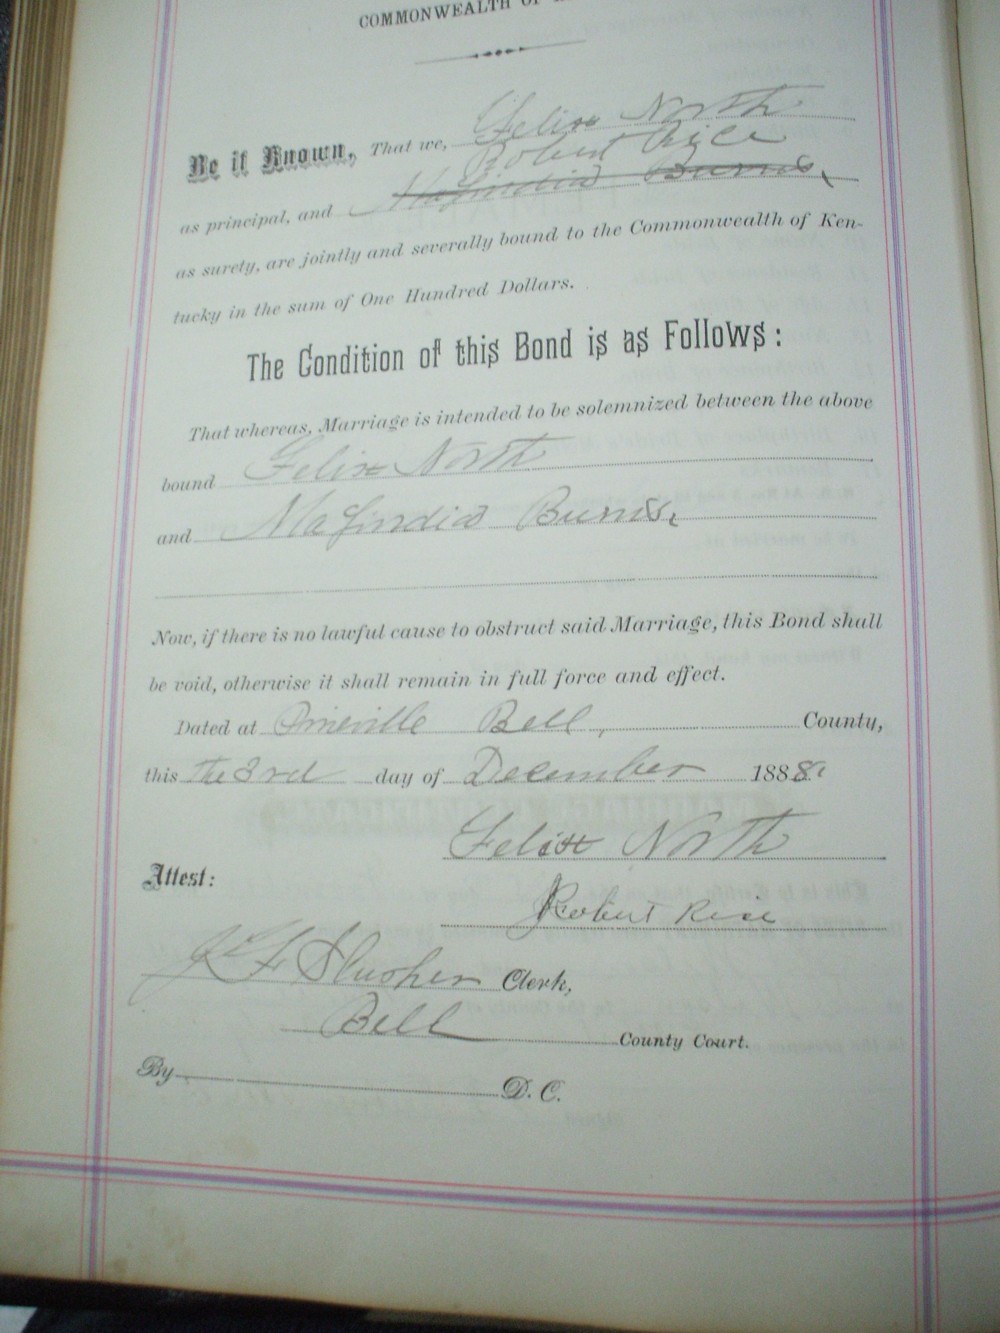 COMMONWEALTH OF
Be it Known, That we, Felix North
Robert Rice
as principal, and Magindia Burns,
as surety, are jointly and severally bound to the Commonwealth of Ken-
tucky in the sum of One Hundred Dollars.
The Condition of this Bond is as Follows:
That whereas, Marriage is intended to be solemnized between the above
bound Felix North
and Magindia Burns.
Now, if there is no lawful cause to obstruct said Marriage, this Bond shall
be void, otherwise it shall remain in full force and effect.
Dated at Pineville Bell, County,
this The 3rd day of December 1888.
Felix North
Attest:
Robert Rice
Slusher Clerk,
Bell County Court.
By D. C.